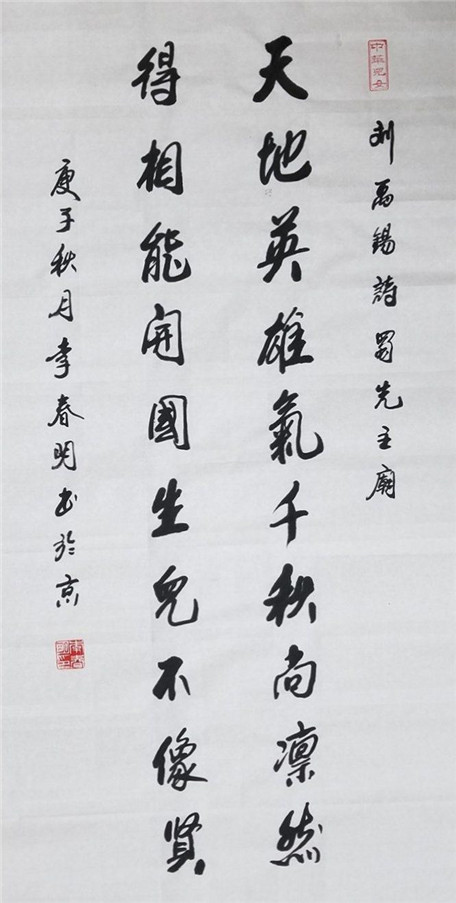 刘禹錫詩蜀先主廟
天地英雄氣千秋尚凛然
得相能開國生兒不像賢
庚子秋月李春明书於京